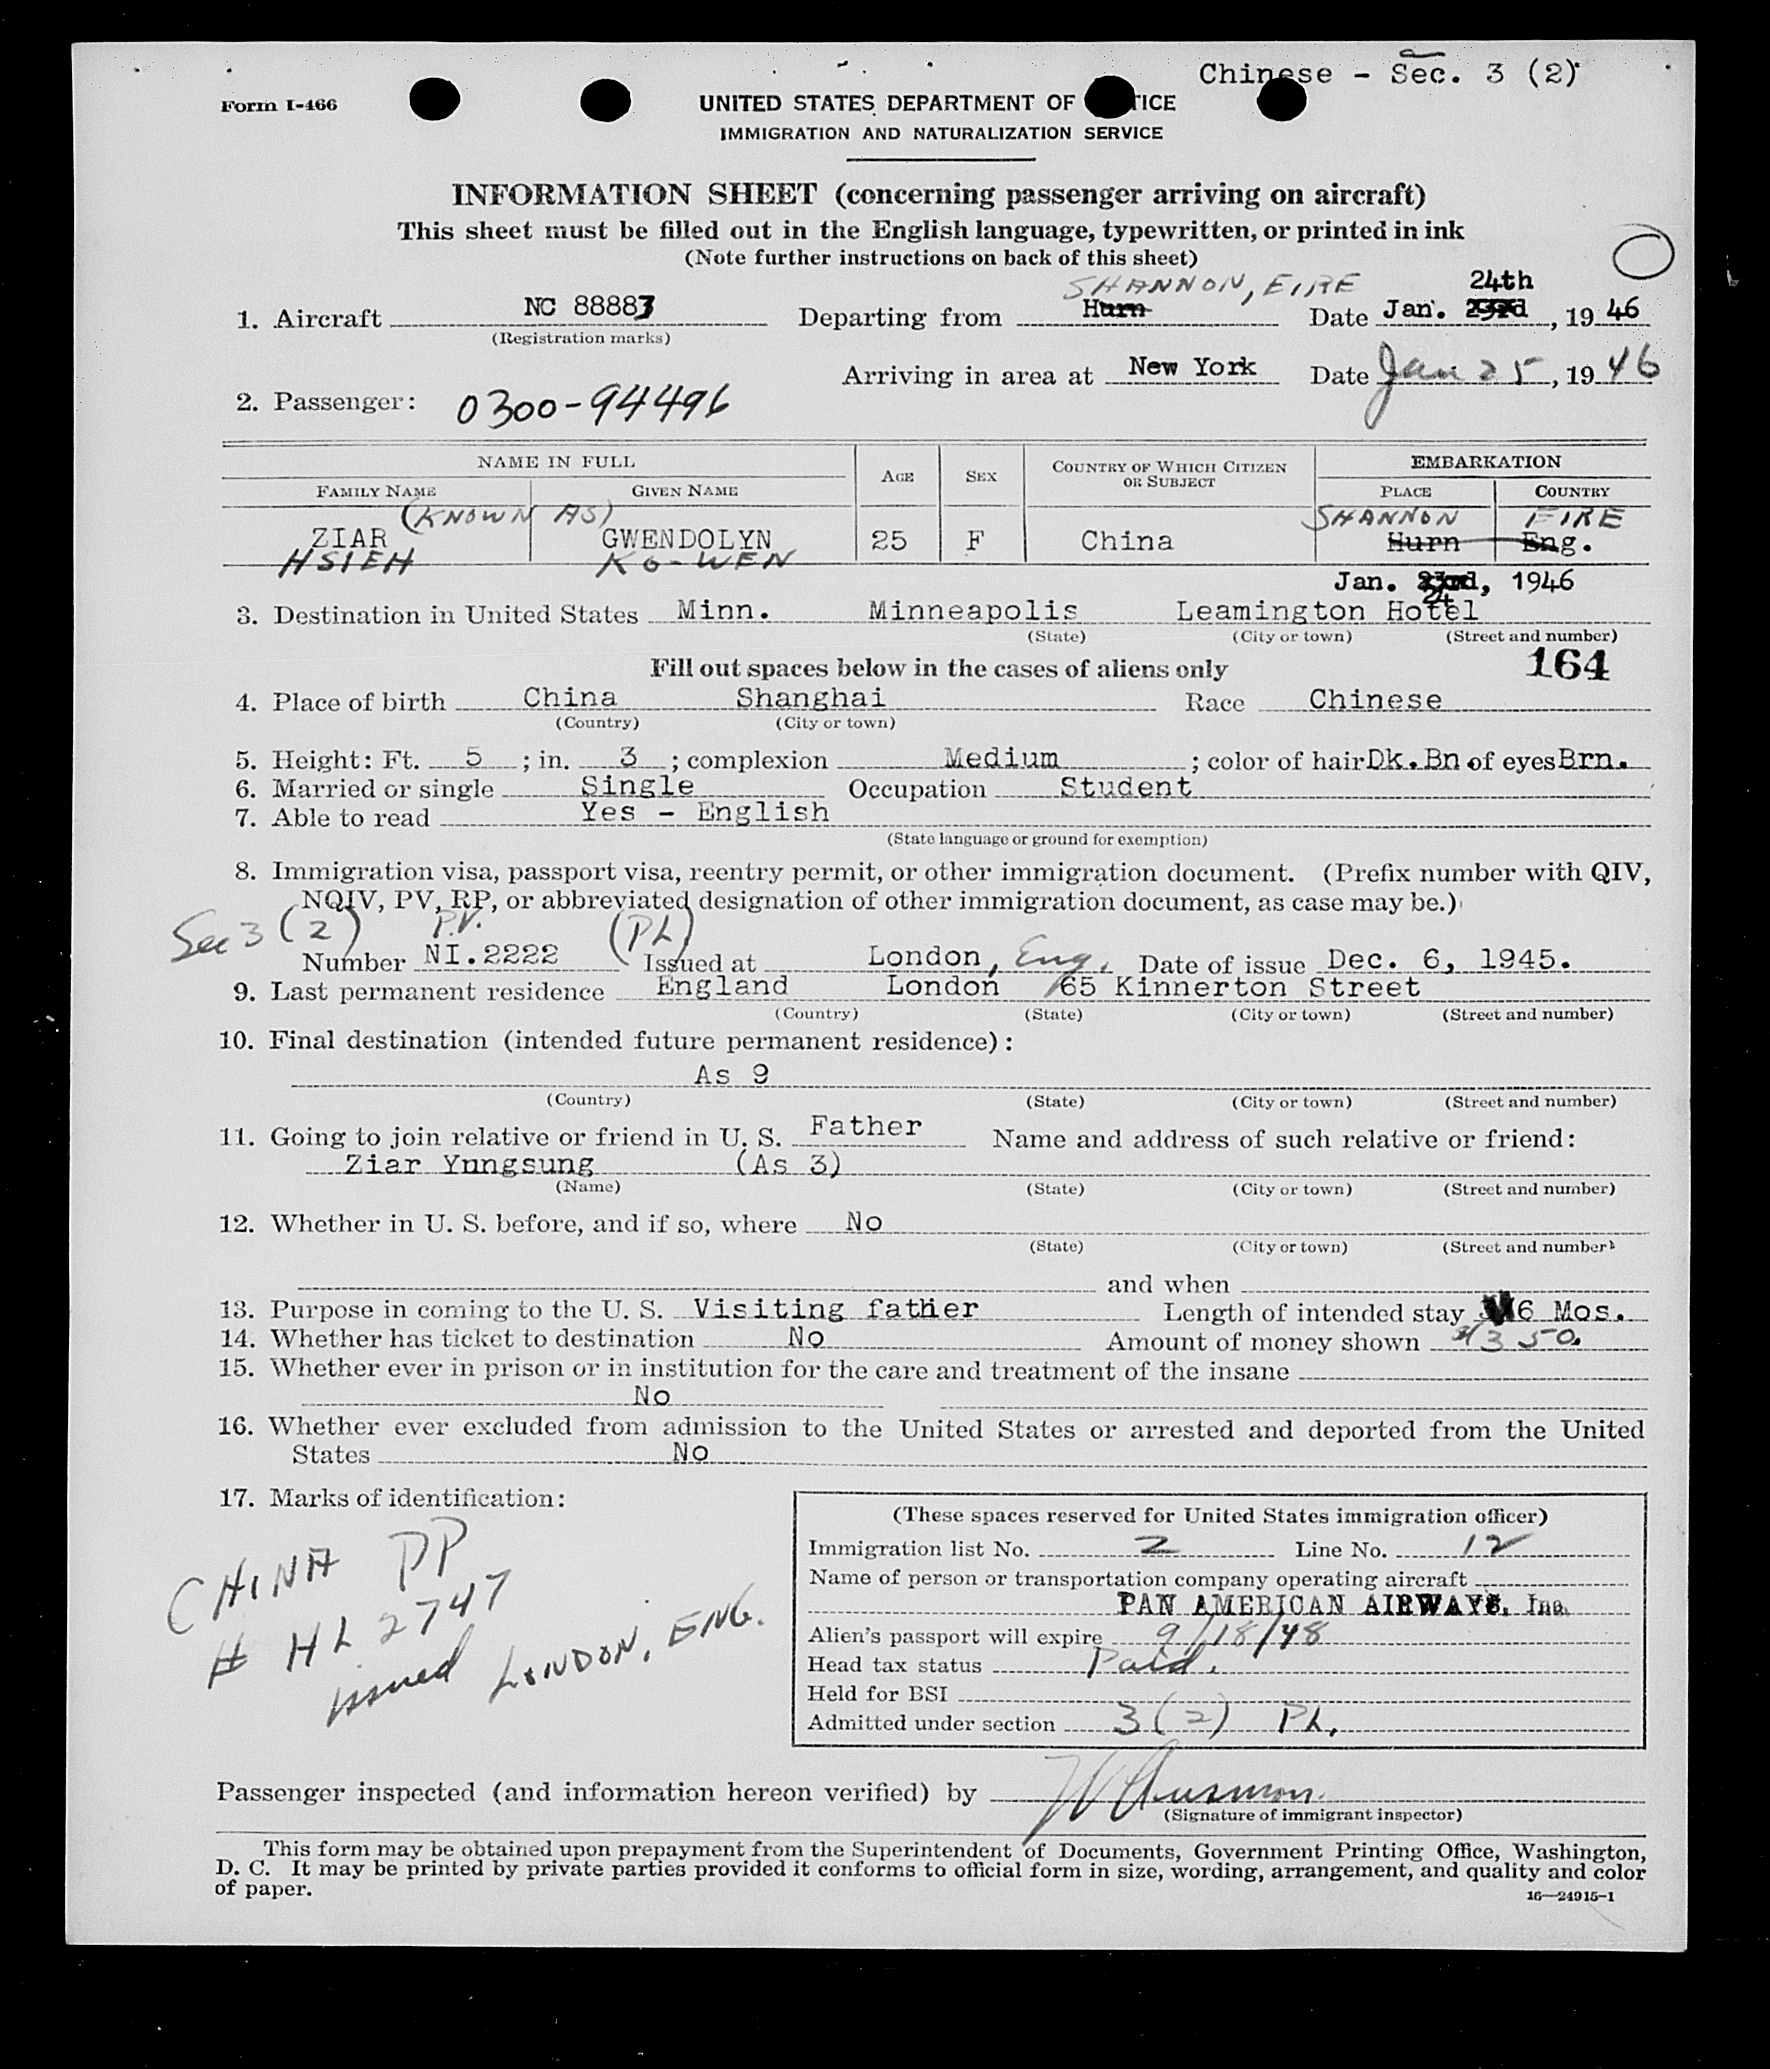 Chinese - Sec. 3 (2)
Form I-466
UNITED STATES DEPARTMENT OF TICE
IMMIGRATION AND NATURALIZATION SERVICE
INFORMATION SHEET (concerning passenger arriving on aircraft)
This sheet must be filled out in the English language, typewritten, or printed in ink
(Note further instructions on back of this sheet)
SHANNON, EIRE 24th
1. Aircraft NC 88883 Departing from Hurn Date Jan. 23rd, 19 46
(Registration marks)
Arriving in area at New York Date Jan 25, 19 46
2. Passenger: 0300-94496
NAME IN FULL AGE SEX COUNTRY OF WHICH CITIZEN OR SUBJECT EMBARKATION
FAMILY NAME GIVEN NAME PLACE COUNTRY
(KNOWN AS) SHANNON EIRE
ZIAR GWENDOLYN 25 F China Hurn Eng.
HSIEH KO-WEN
Jan. 23rd, 1946
24
3. Destination in United States Minn. Minneapolis Leamington Hotel
(State) (City or town) (Street and number)
Fill out spaces below in the cases of aliens only 164
4. Place of birth China Shanghai Race Chinese
(Country) (City or town)
5. Height: Ft. 5; in. 3; complexion Medium; color of hair Dk.Bn of eyes Brn.
6. Married or single Single Occupation Student
7. Able to read Yes - English
(State language or ground for exemption)
8. Immigration visa, passport visa, reentry permit, or other immigration document. (Prefix number with QIV,
NQIV, PV, RP, or abbreviated designation of other immigration document, as case may be.)
Sec 3 (2) P.V. (PL)
Number NI.2222 Issued at London, Eng. Date of issue Dec. 6, 1945.
9. Last permanent residence England London 65 Kinnerton Street
(Country) (State) (City or town) (Street and number)
10. Final destination (intended future permanent residence):
As 9
(Country) (State) (City or town) (Street and number)
11. Going to join relative or friend in U. S. Father Name and address of such relative or friend:
Ziar Ynngsung (As 3)
(Name) (State) (City or town) (Street and number)
12. Whether in U. S. before, and if so, where No
(State) (City or town) (Street and number)
and when
13. Purpose in coming to the U. S. Visiting father Length of intended stay 6 Mos.
14. Whether has ticket to destination No Amount of money shown $350.
15. Whether ever in prison or in institution for the care and treatment of the insane
No
16. Whether ever excluded from admission to the United States or arrested and deported from the United
States No
17. Marks of identification:
CHINA PP
# HL 2747
issued LONDON, ENG.
(These spaces reserved for United States immigration officer)
Immigration list No. 2 Line No. 12
Name of person or transportation company operating aircraft
PAN AMERICAN AIRWAYS, Inc.
Alien's passport will expire 9/18/48
Head tax status Paid.
Held for BSI
Admitted under section 3(2) PL.
Passenger inspected (and information hereon verified) by
(Signature of immigrant inspector)
This form may be obtained upon prepayment from the Superintendent of Documents, Government Printing Office, Washington,
D. C. It may be printed by private parties provided it conforms to official form in size, wording, arrangement, and quality and color
of paper.
16—24915-1